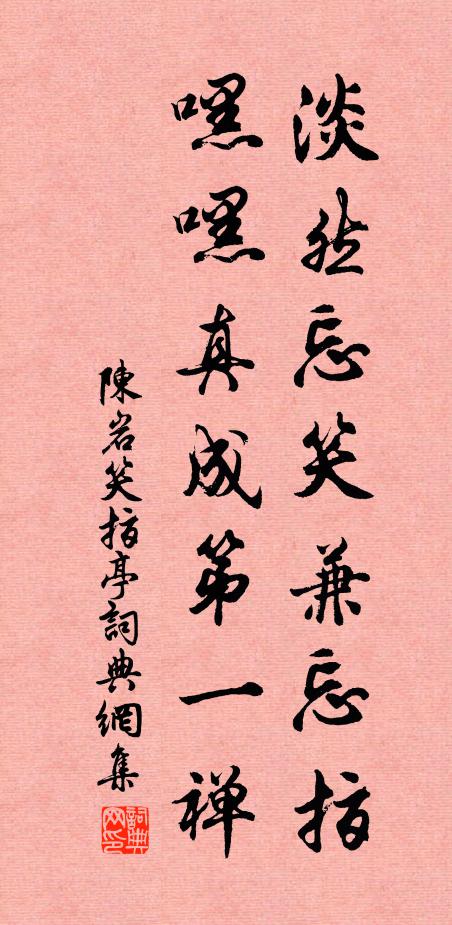 淡然忘笑兼忘指
嘿嘿真成第一禅
陳岩笑指亭詞典網集
詞典网印